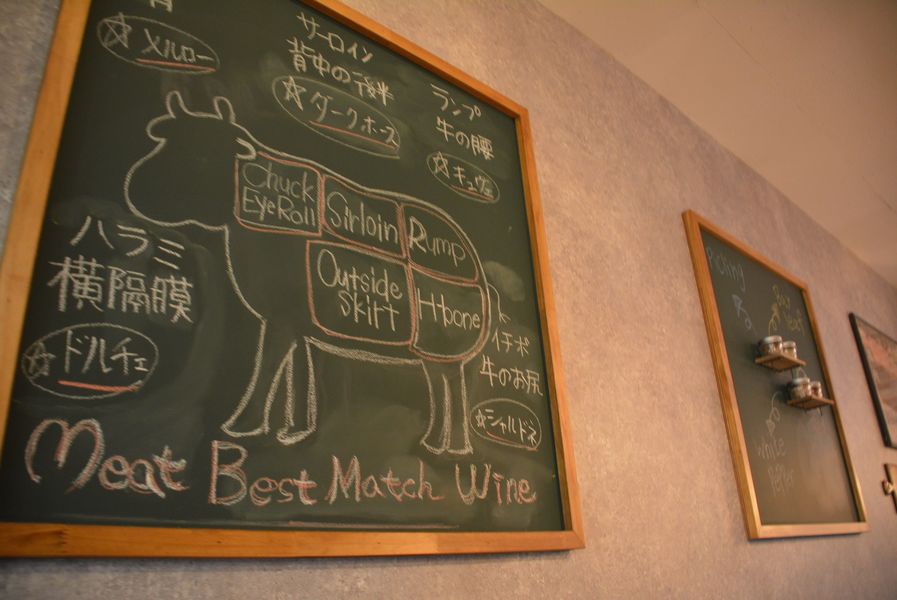 メルロー
サーロイン
背中の後半
ダークホース
ランプ
牛の腰
キュヴェ
Chuck
EyeRoll
Sirloin
Rump
Outside
Skirt
Hbone
ハラミ
横隔膜
ドルチェ
イチボ
牛のお尻
シャルドネ
Meat Best Match Wine
Picking
Bay
leaf
White
Pepper